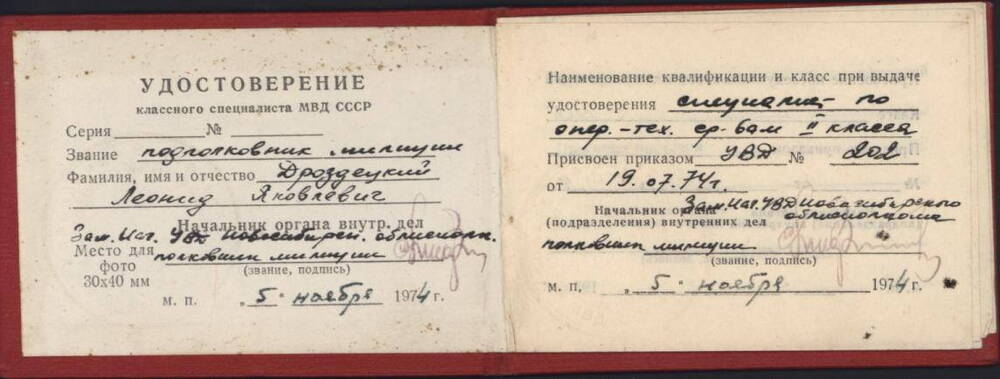 УДОСТОВЕРЕНИЕ
классного специалиста МВД СССР
Серия № 
Звание подполковник милиции
Фамилия, имя и отчество Дроздецкий
Леонид Яковлевич
Начальник органа внутр. дел
Зам. Нач. УВД Новосибирск. облисполк.
Место для полковник милиции
фото (звание, подпись)
30х40 мм
м. п. „5" ноября 1974 г.
Наименование квалификации и класс при выдаче
удостоверения специалист по
опер.-тех. ср-вам II класса
Присвоен приказом УВД № 202
от 19.07.74г.
Зам. Нач. УВД Новосибирского
Начальник органа облисполкома
(подразделения) внутренних дел
полковник милиции
(звание, подпись)
м. п. „5" ноября 1974 г.